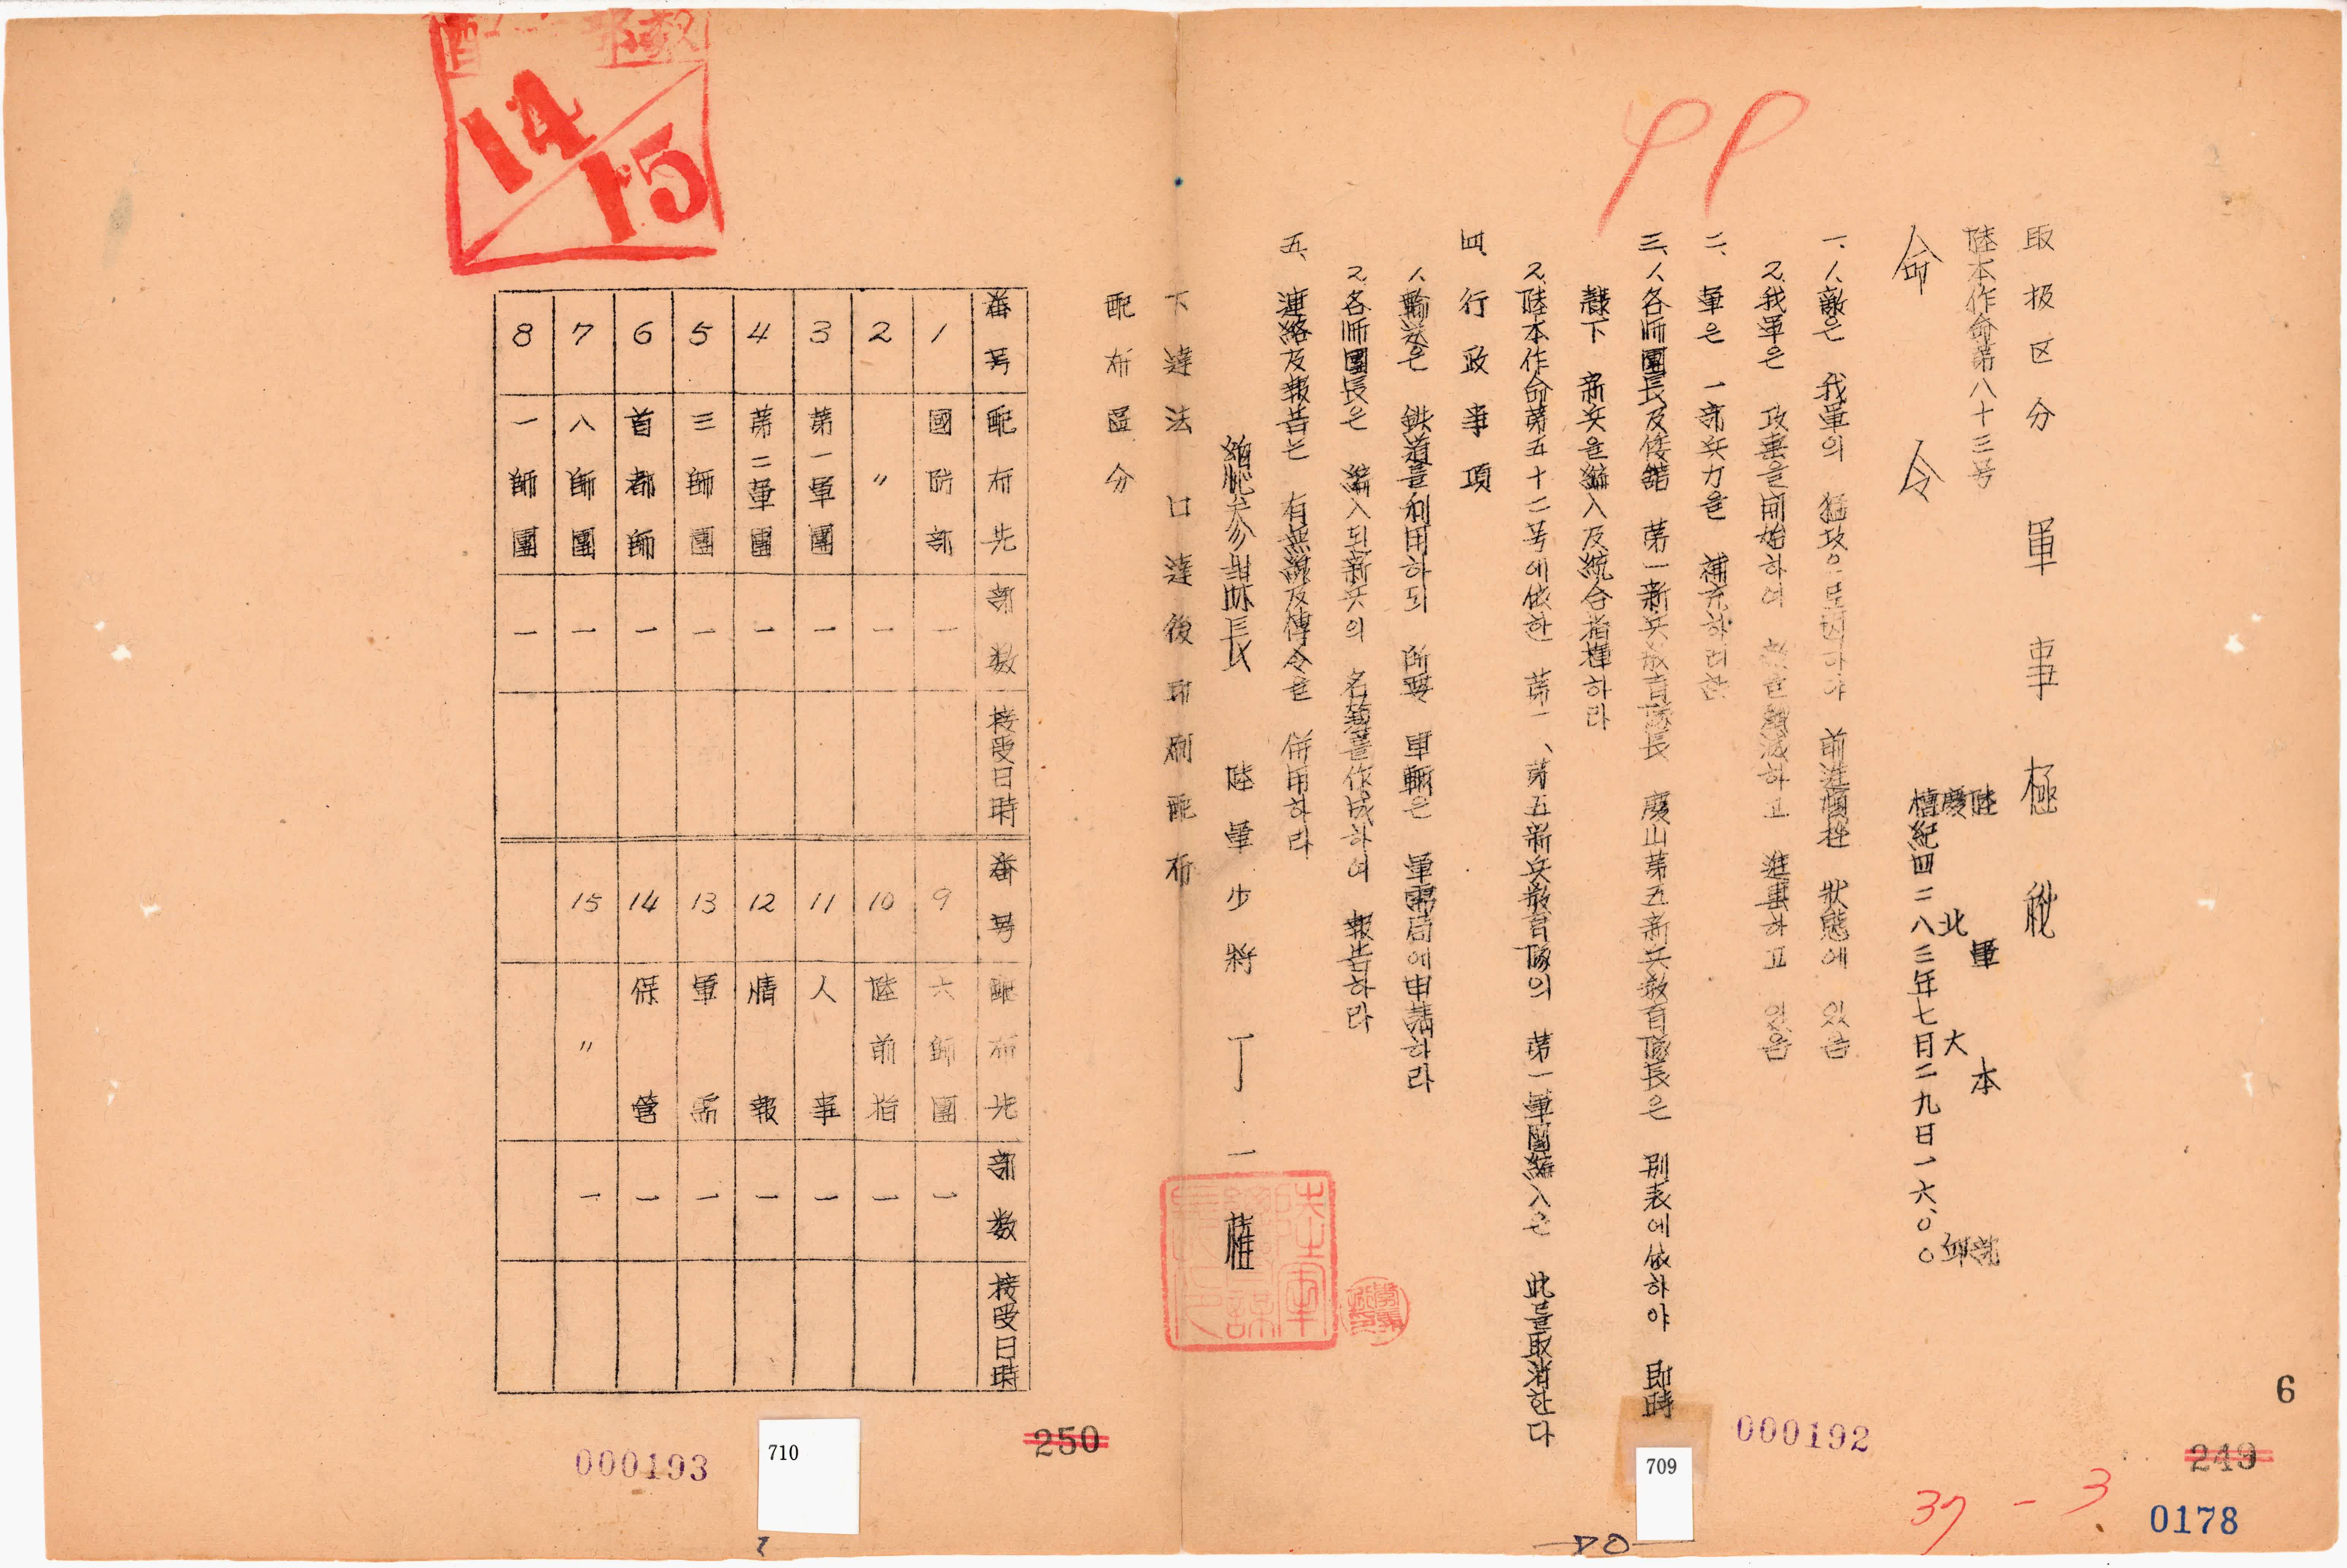 取扱区分 軍事極秘
陸本作命第八十三号
陸軍本部
慶北大邱
檀紀四二八三年七月二九日一六、〇〇
命令
一、1、敵은 我軍의 猛攻으로 因하야 前進頓挫 狀態에 있음
2、我軍은 攻擊을 開始하여 敵을 殲滅하고 進擊하고 있음
二、軍은 一部兵力을 補充하려 함
三、1、各師團長及 第一新兵敎育隊長 慶山第五新兵敎育隊長은 別表에 依하야 即時
隸下 新兵을 編入及統合指揮하라
2、陸本作命第五十二号에 依한 第一、第五新兵敎育隊의 第一軍團編入은 此를 取消한다
四、行政事項
1、輸送은 鉄道를 利用하되 所要 車輛은 軍需局에 申請하라
2、各師團長은 編入된 新兵의 名簿를 作成하여 報告하라
五、連絡及報告는 有無線及傳令을 併用하라
總參謀長 陸軍少將 丁一權
下達法 口達後印刷配布
配布區分
番号 配布先 部数 接受日時 番号 配布先 部数 接受日時
1 國防部 一 9 六師團 一
2 〃 一 10 陸前指 一
3 第一軍團 一 11 人事 一
4 第二軍團 一 12 情報 一
5 三師團 一 13 軍需 一
6 首都師 一 14 保管 一
7 八師團 一 15 〃 一
8 一師團 一
14
15
6
249
000192
709
37-3
0178
250
710
000193